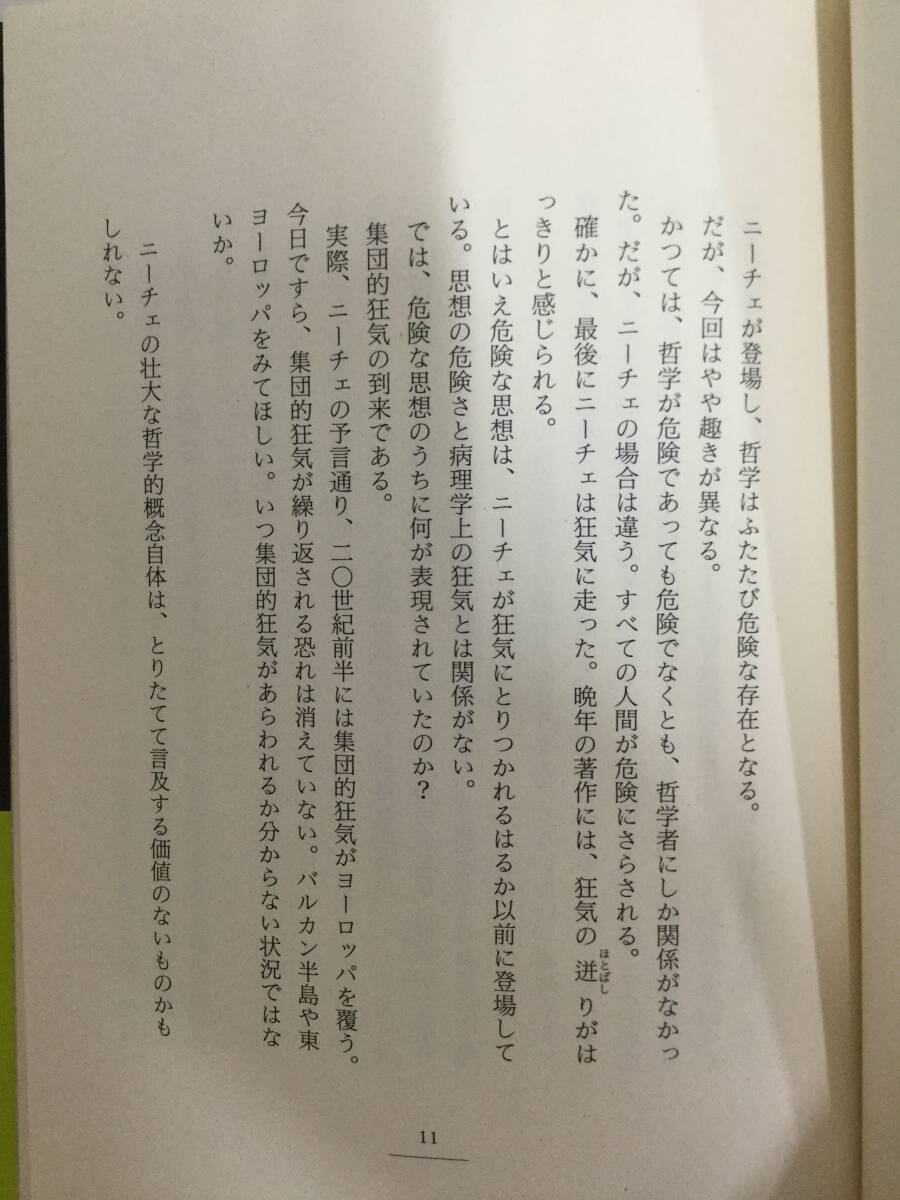 ニーチェが登場し、哲学はふたたび危険な存在となる。
だが、今回はやや趣きが異なる。
かつては、哲学が危険であっても危険でなくとも、哲学者にしか関係がなかっ
た。だが、ニーチェの場合は違う。すべての人間が危険にさらされる。
確かに、最後にニーチェは狂気に走った。晩年の著作には、狂気の迸りがは
ほとばし
っきりと感じられる。
とはいえ危険な思想は、ニーチェが狂気にとりつかれるはるか以前に登場して
いる。思想の危険さと病理学上の狂気とは関係がない。
では、危険な思想のうちに何が表現されていたのか？
集団的狂気の到来である。
実際、ニーチェの予言通り、二〇世紀前半には集団的狂気がヨーロッパを覆う。
今日ですら、集団的狂気が繰り返される恐れは消えていない。バルカン半島や東
ヨーロッパをみてほしい。いつ集団的狂気があらわれるか分からない状況ではな
いか。
ニーチェの壮大な哲学的概念自体は、とりたてて言及する価値のないものかも
しれない。
11